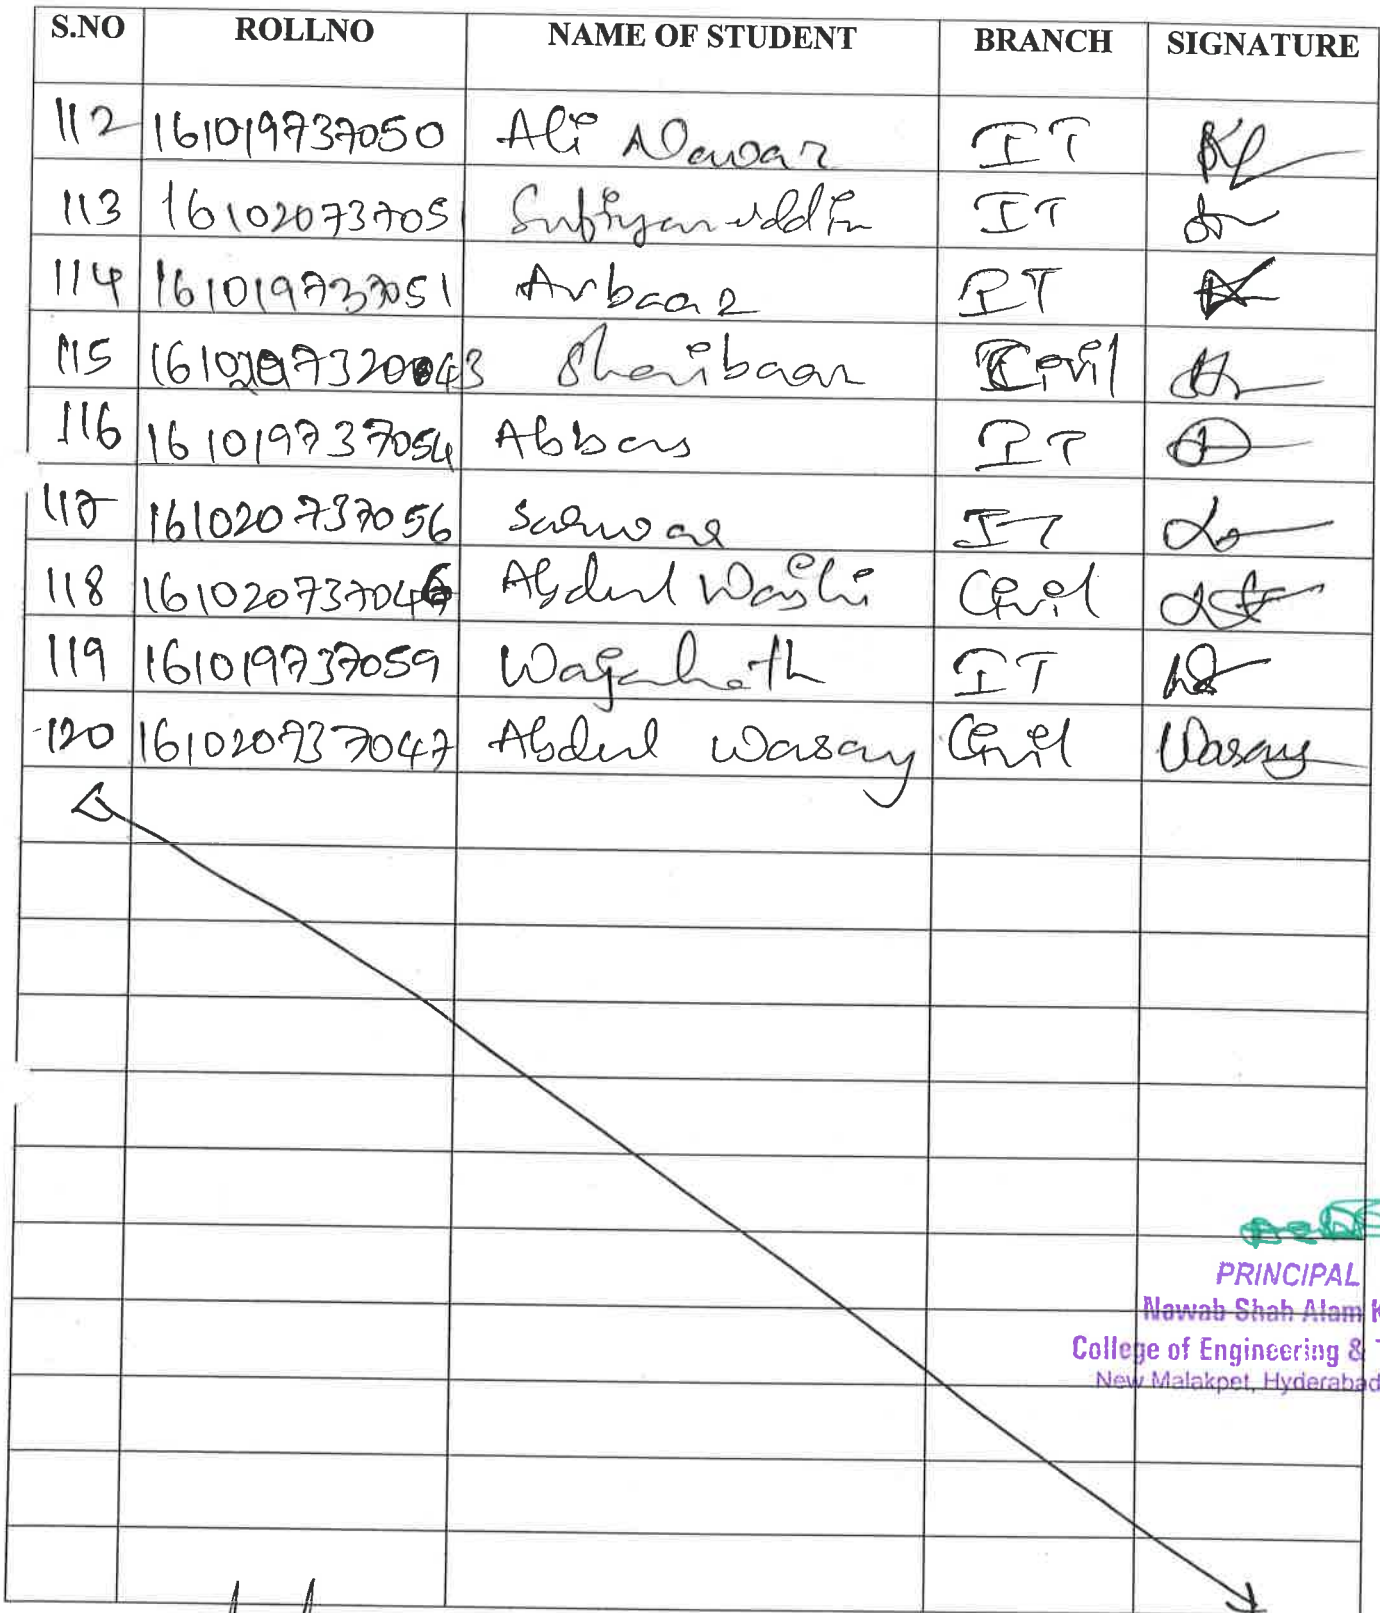 S.NO ROLLNO NAME OF STUDENT BRANCH SIGNATURE
112 161019737050 Ali Nawaz IT
113 161020737051 Sufiyanuddin IT
114 161019737051 Arbaaz IT
115 Shaibaan Civil
116 161019737054 Abbas IT
117 161020737056 Sarwar IT
118 161020737046 Abdul Civil
119 161019737059 Wajahath IT
120 161020737047 Abdul Wasay Civil Wasay
PRINCIPAL
Nawab Shah Alam K
College of Engineering &
New Malakpet, Hyderabad